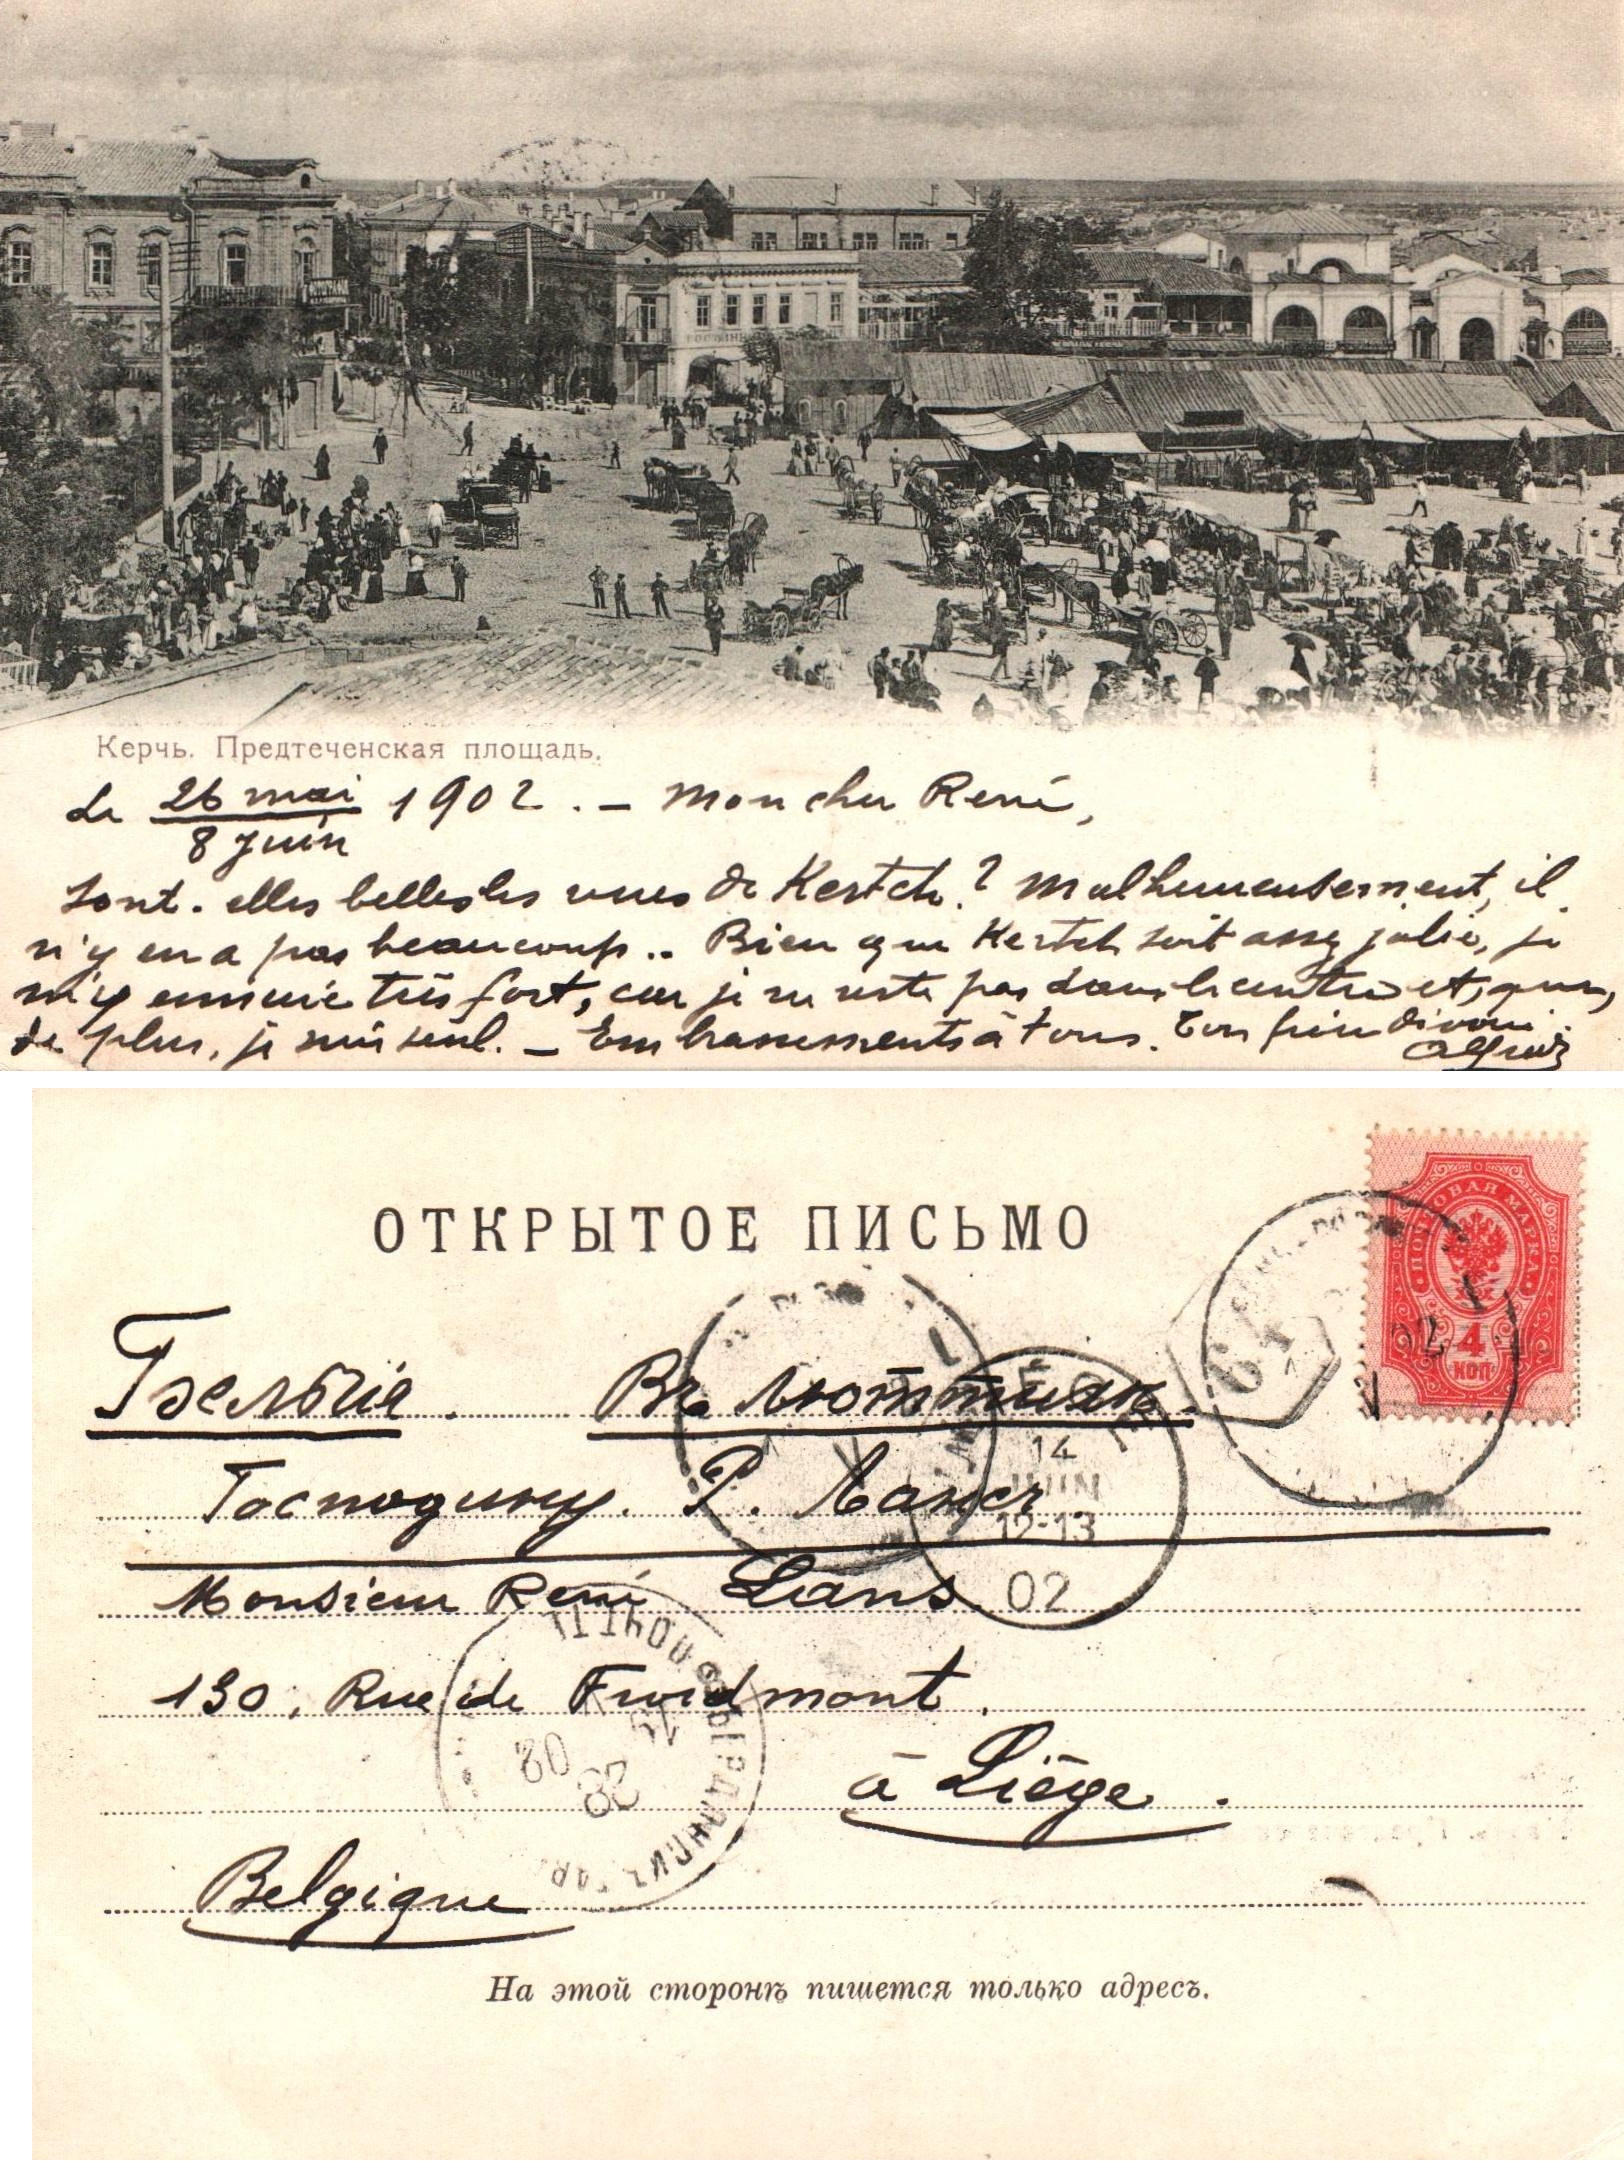 Керчь. Предтеченская площадь.
Le 26 mai 1902. — Mon cher René,
8 Juin
Sont-elles belles les vues de Kertch? Malheureusement, il
n'y en a pas beaucoup.. Bien que Kertch soit assez jolie, je
m'y ennuie très fort, car je ne reste pas dans le centre et, que,
de plus, je suis seul. — Embrassements à tous. Ton frère
ОТКРЫТОЕ ПИСЬМО
ПОЧТОВАЯ МАРКА
4
КОП
64
02
Бельгія. Въ Люттихъ.
14
JUIN
12-13
02
Господину. Р. Лансъ
Monsieur René Lans.
130, Rue de Froidmont.
28
02
à Liège.
Belgique
На этой сторонѣ пишется только адресъ.